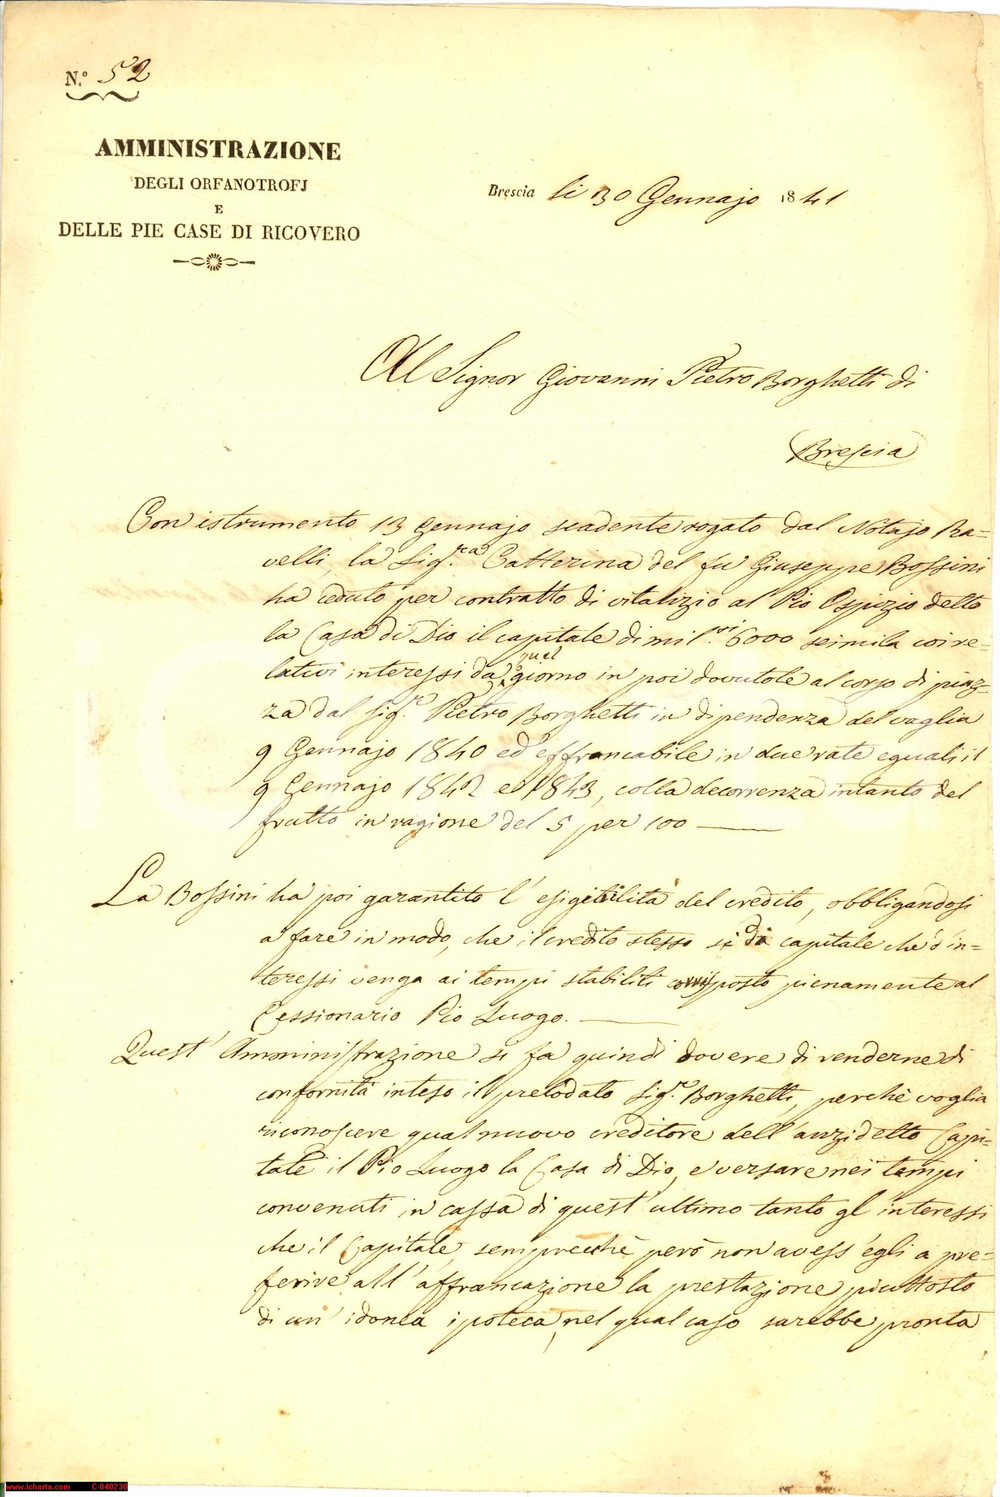 N.º 52
AMMINISTRAZIONE
DEGLI ORFANOTROFJ
E
DELLE PIE CASE DI RICOVERO
Brescia li 30 Gennajo 1841
Al Signor Giovanni Pietro Borghetti di
Brescia
Con istrumento 13 Gennajo scadente rogato dal Notajo Ra=
velli, la Sig.ra Catterina del fu Giuseppe Bossini
ha ceduto per contratto di vitalizio al Pio Ospizio detto
la Casa di Dio il capitale di mil. 6000 seimila coi re=
lativi interessi da qual giorno in poi dovutole al corso di piaz=
za dal Sig.r Pietro Borghetti in dipendenza del vaglia
9 Gennajo 1840 ed affrancabile in due rate eguali il
9 Gennajo 1842 e 1843, colla decorrenza intanto del
frutto in ragione del 5 per 100
La Bossini ha poi garantito l'esigibilità del credito, obbligandosi
a fare in modo, che il credito stesso sì di capitale che d'in=
teressi venga ai tempi stabiliti corrisposto pienamente al
Cessionario Pio Luogo.
Quest'Amministrazione si fa quindi dovere di renderne di
conformità inteso il prelodato Sig.r Borghetti, perchè voglia
riconoscere qual nuovo creditore dell'anzidetto Capi=
tale il Pio Luogo la Casa di Dio, e versare nei tempi
convenuti in cassa di quest'ultimo tanto gl'interessi
che il Capitale, sempreché però non avess'egli a pre=
ferire all'affrancazione la prestazione piuttosto
di un'idonea ipoteca, nel qual caso sarebbe pronta
www.icharta.com C-040230